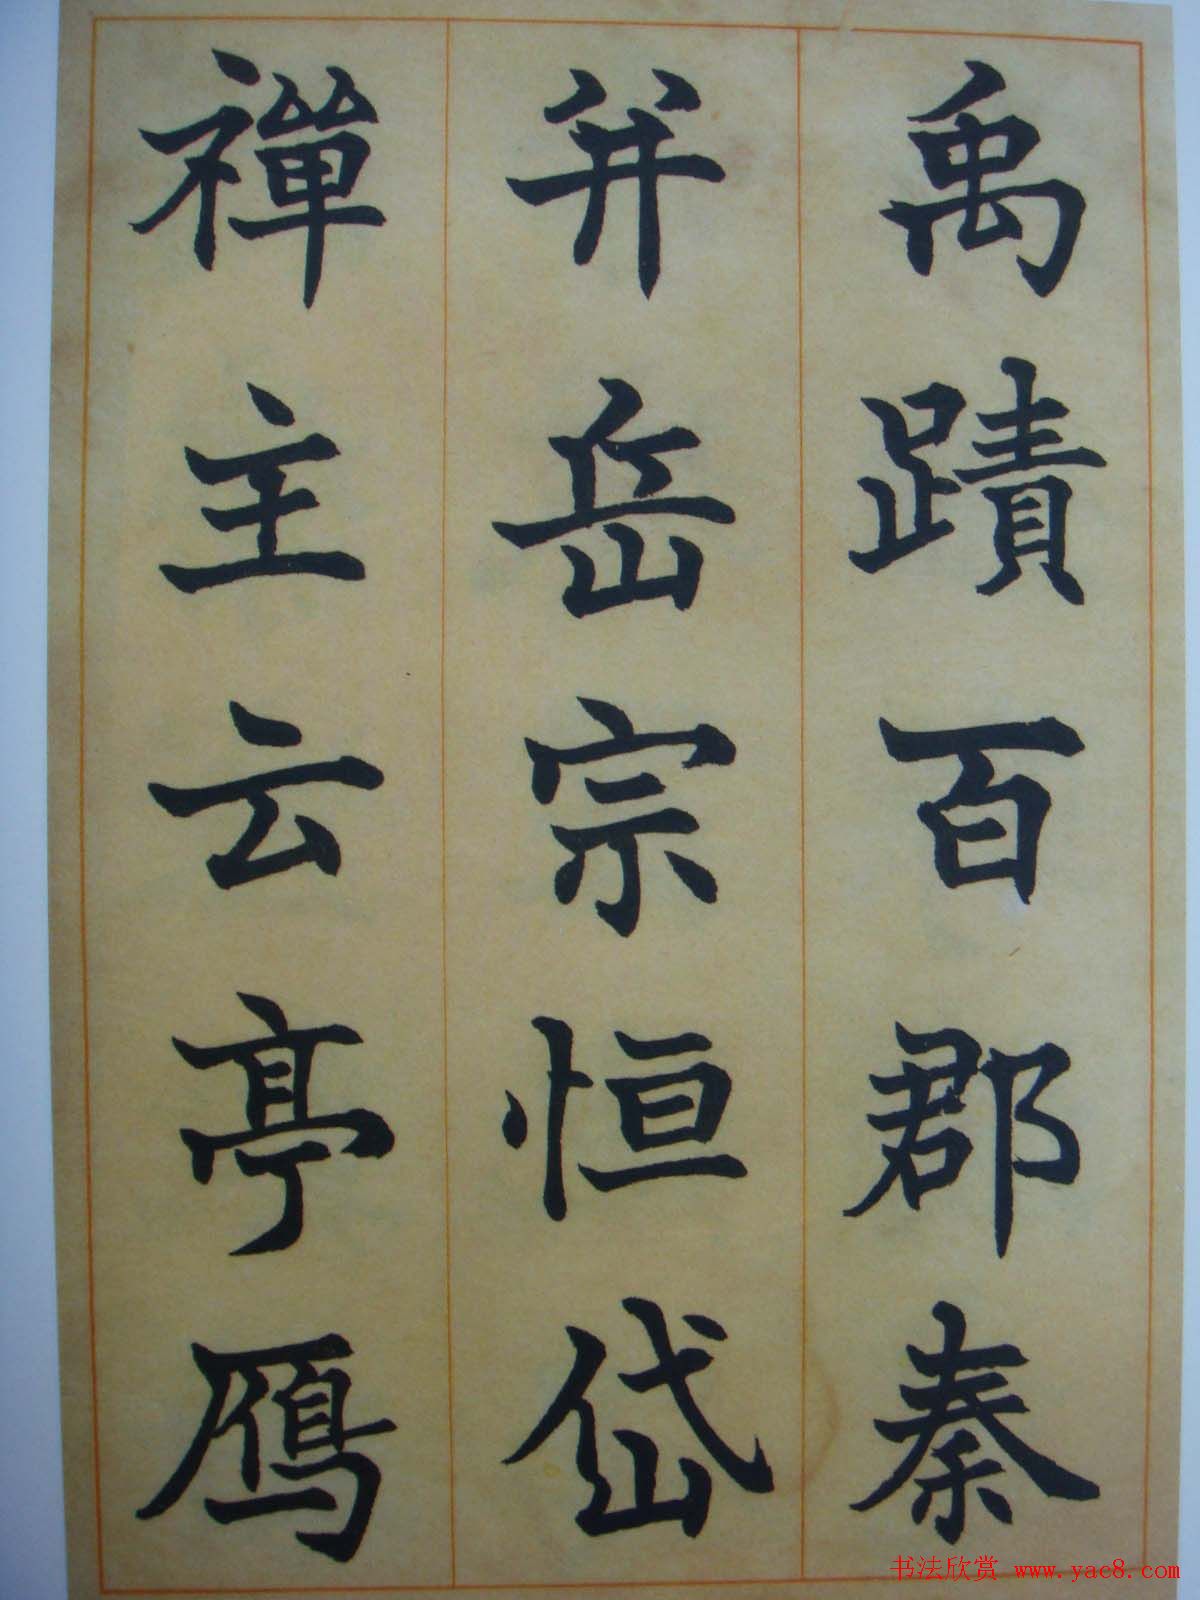 禹蹟百郡秦
并岳宗恒岱
禪主云亭鴈
书法欣赏 www.yac8.com